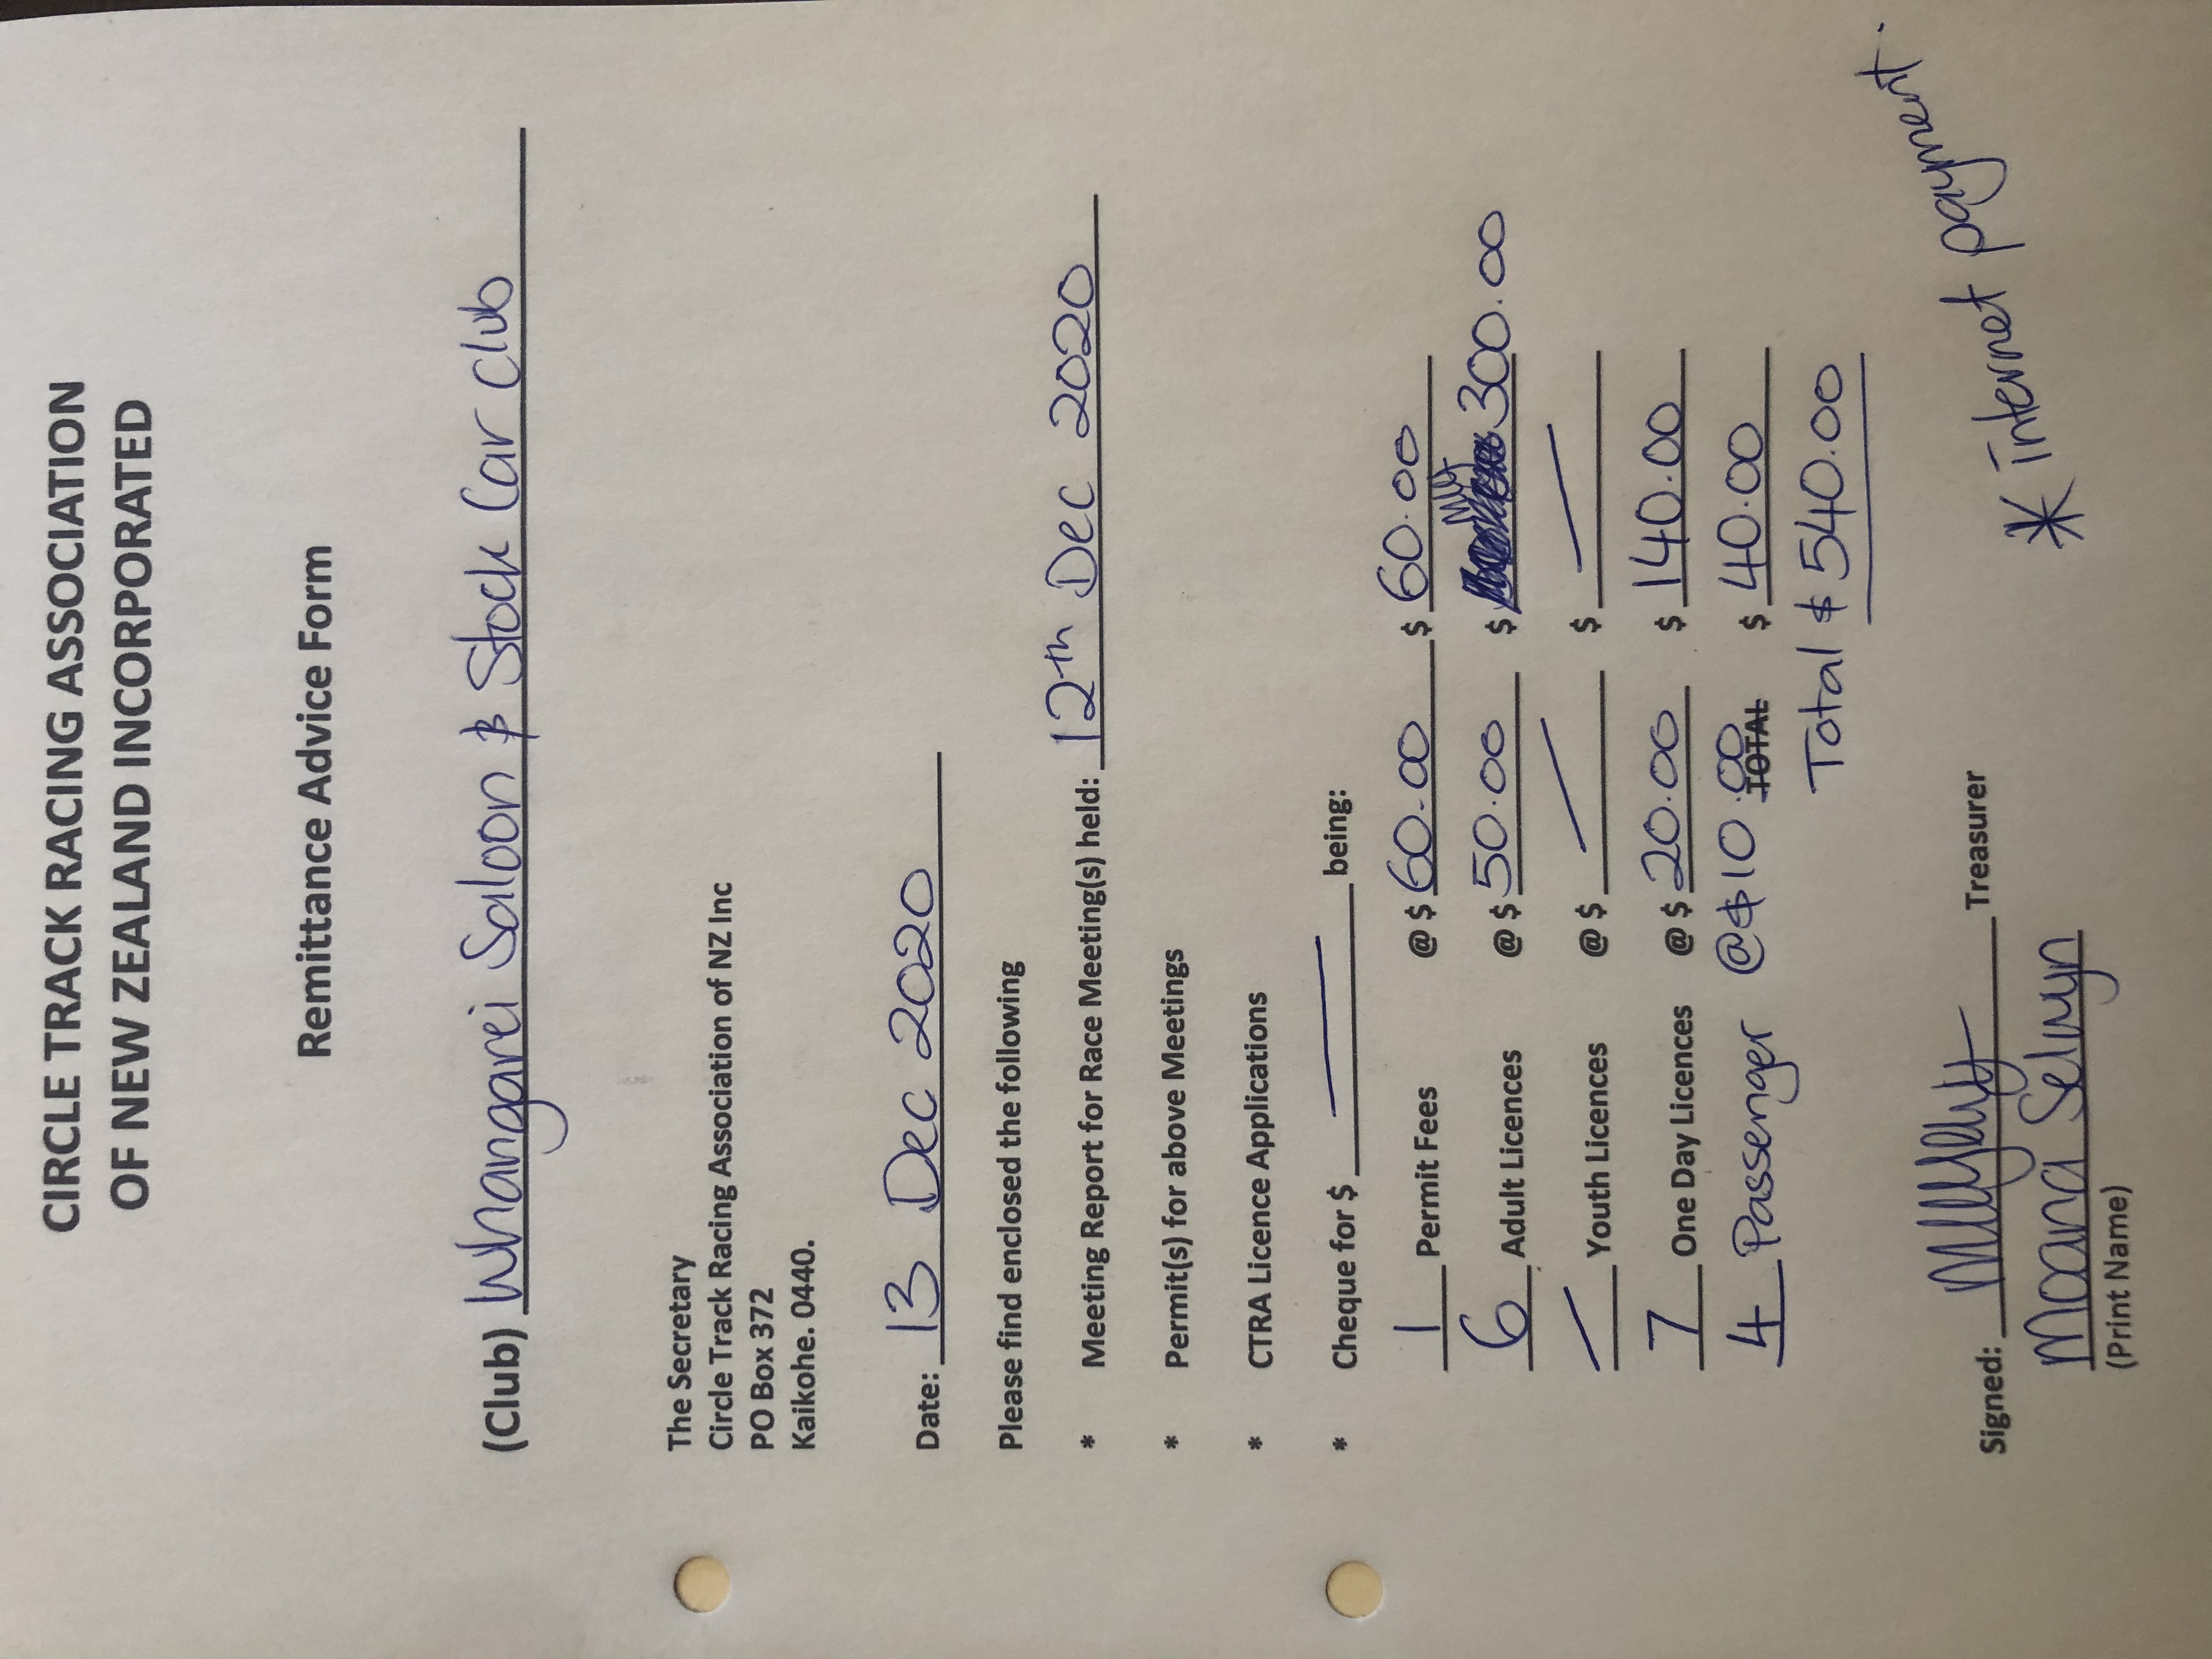 CIRCLE TRACK RACING ASSOCIATION
OF NEW ZEALAND INCORPORATED
Remittance Advice Form
(Club) Whangarei Saloon & Stock Car Club
The Secretary
Circle Track Racing Association of NZ Inc
PO Box 372
Kaikohe. 0440.
Date: 13 Dec 2020
Please find enclosed the following
* Meeting Report for Race Meeting(s) held: 12th Dec 2020
* Permit(s) for above Meetings
* CTRA Licence Applications
* Cheque for $ — being:
1 Permit Fees @ $ 60.00 $ 60.00
6 Adult Licences @ $ 50.00 $ 300.00
/ Youth Licences @ $ / $ /
7 One Day Licences @ $ 20.00 $ 140.00
4 Passenger @ $10.00 TOTAL $ 40.00
Total $ 540.00
* internet payment.
Signed: Treasurer
Moana Selwyn
(Print Name)